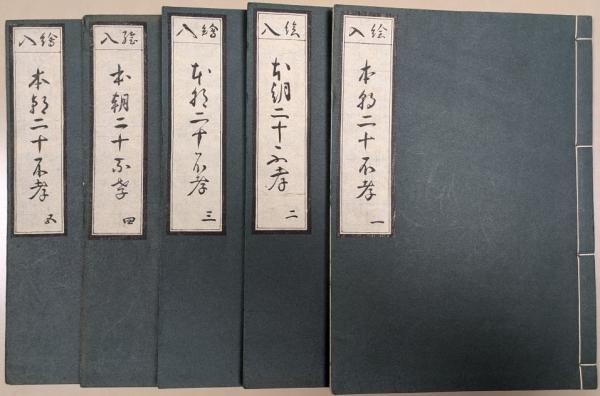 絵入
本朝二十不孝 一
絵入
本朝二十不孝 二
繪入
本朝二十不孝 三
絵入
本朝二十不孝 四
繪入
本朝二十不孝 五